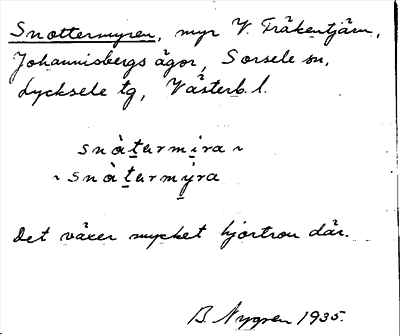 Snottermyren, myr V. Fräkentjärn,
Johannisbergs ägor, Sorsele sn,
Lycksele tg, Västerb. l.
snàtarmira ~
~ snàtarmyra
Det växer mycket hjortron där.
B. Nygren 1935.